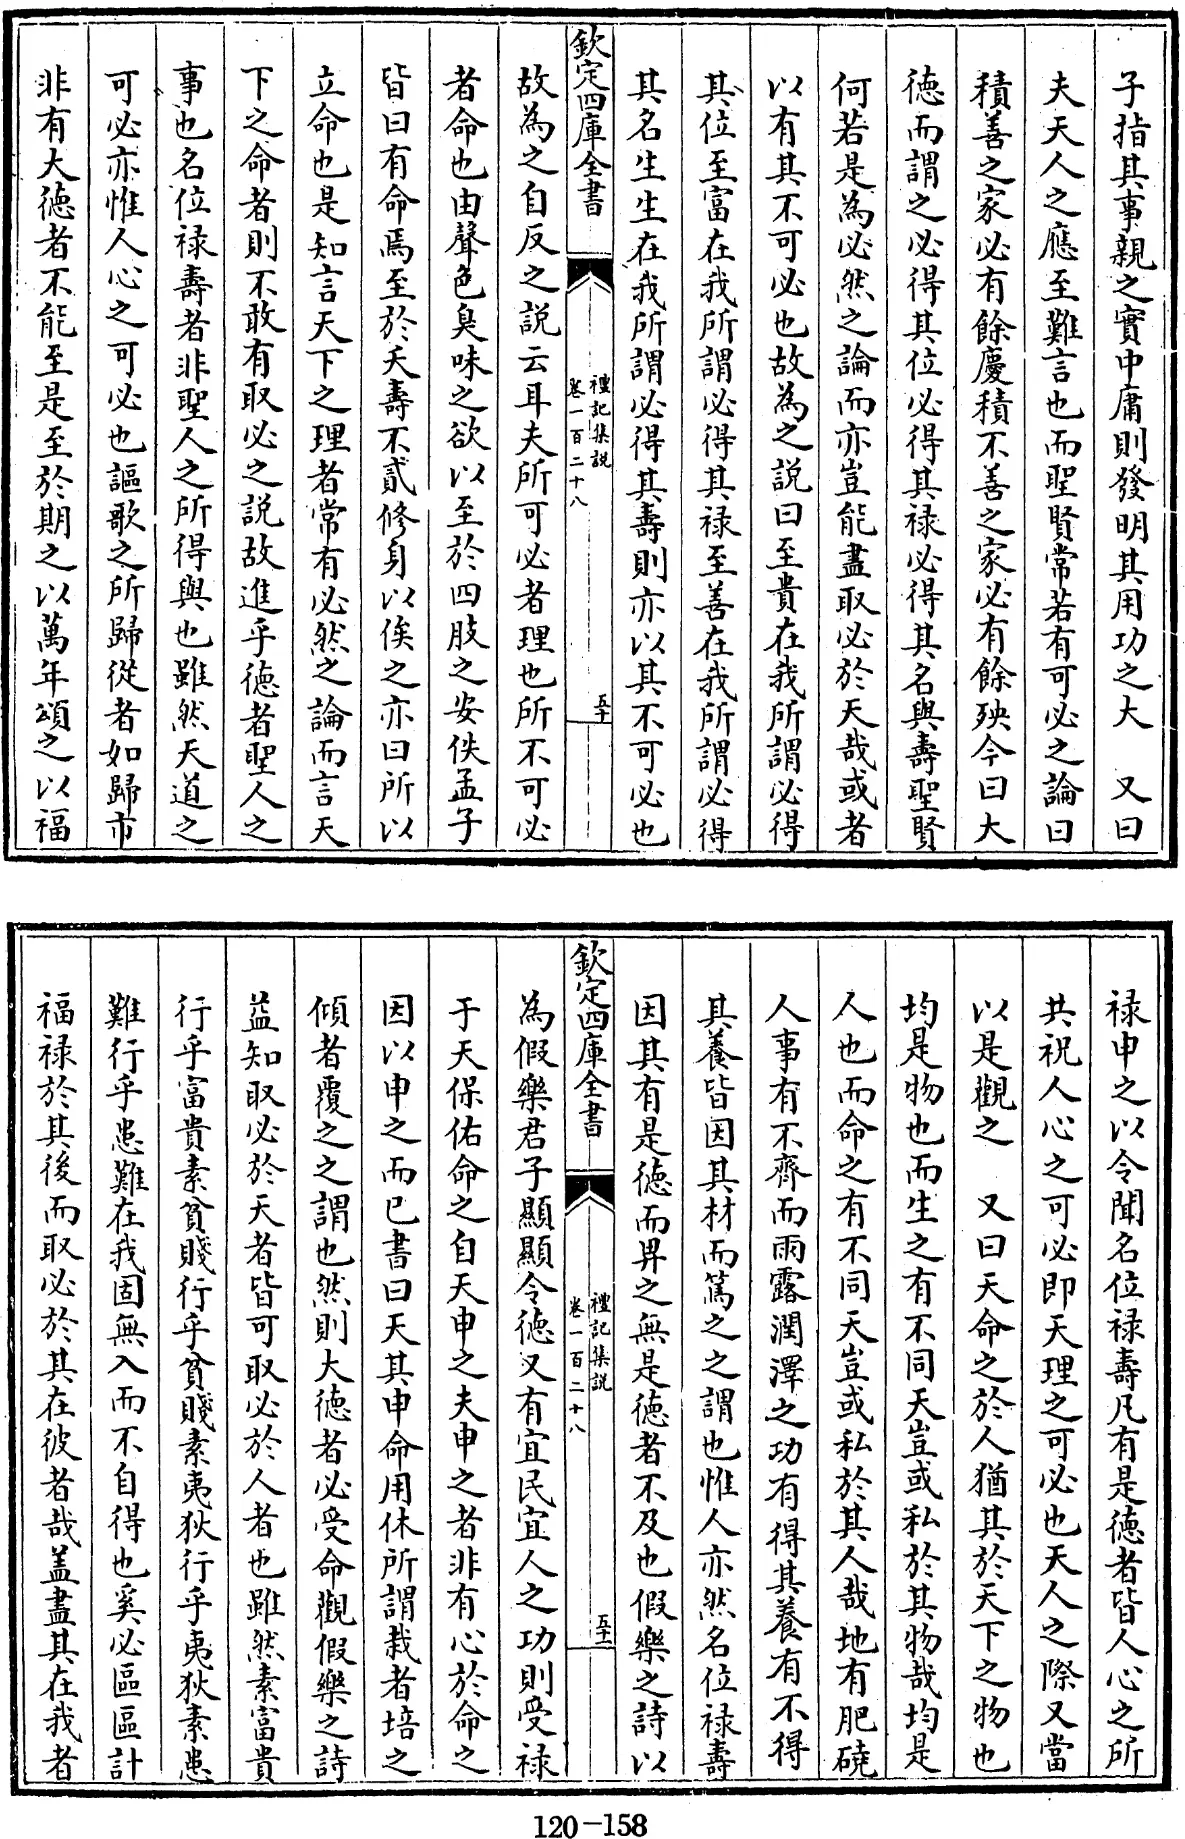 子指其事親之實中庸則發明其用功之大　又曰
夫天人之應至難言也而聖賢常若有可必之論曰
積善之家必有餘慶積不善之家必有餘殃今曰大
德而謂之必得其位必得其祿必得其名與壽聖賢
何若是為必然之論而亦豈能盡取必於天哉或者
以有其不可必也故為之説曰至貴在我所謂必得
其位至富在我所謂必得其祿至善在我所謂必得
其名生生在我所謂必得其壽則亦以其不可必也
欽定四庫全書
禮記集説
卷一百二十八
五十
故為之自反之説云耳夫所可必者理也所不可必
者命也由聲色臭味之欲以至於四肢之安佚孟子
皆曰有命焉至於夭壽不貳修身以俟之亦曰所以
立命也是知言天下之理者常有必然之論而言天
下之命者則不敢有取必之説故進乎德者聖人之
事也名位祿壽者非聖人之所得與也雖然天道之
可必亦惟人心之可必也謳歌之所歸從者如歸市
非有大德者不能至是至於期之以萬年頌之以福
祿申之以令聞名位祿壽凡有是德者皆人心之所
共祝人心之可必即天理之可必也天人之際又當
以是觀之　又曰天命之於人猶其於天下之物也
均是物也而生之有不同天豈或私於其物哉均是
人也而命之有不同天豈或私於其人哉地有肥磽
人事有不齊而雨露潤澤之功有得其養有不得
其養皆因其材而篤之之謂也惟人亦然名位祿壽
因其有是德而畀之無是德者不及也假樂之詩以
欽定四庫全書
禮記集説
卷一百二十八
五十一
為假樂君子顯顯令德又有宜民宜人之功則受祿
于天保佑命之自天申之夫申之者非有心於命之
因以申之而已書曰天其申命用休所謂栽者培之
傾者覆之之謂也然則大德者必受命觀假樂之詩
益知取必於天者皆可取必於人者也雖然素富貴
行乎富貴素貧賤行乎貧賤素夷狄行乎夷狄素患
難行乎患難在我固無入而不自得也奚必區區計
福祿於其後而取必於其在彼者哉蓋盡其在我者
120-158